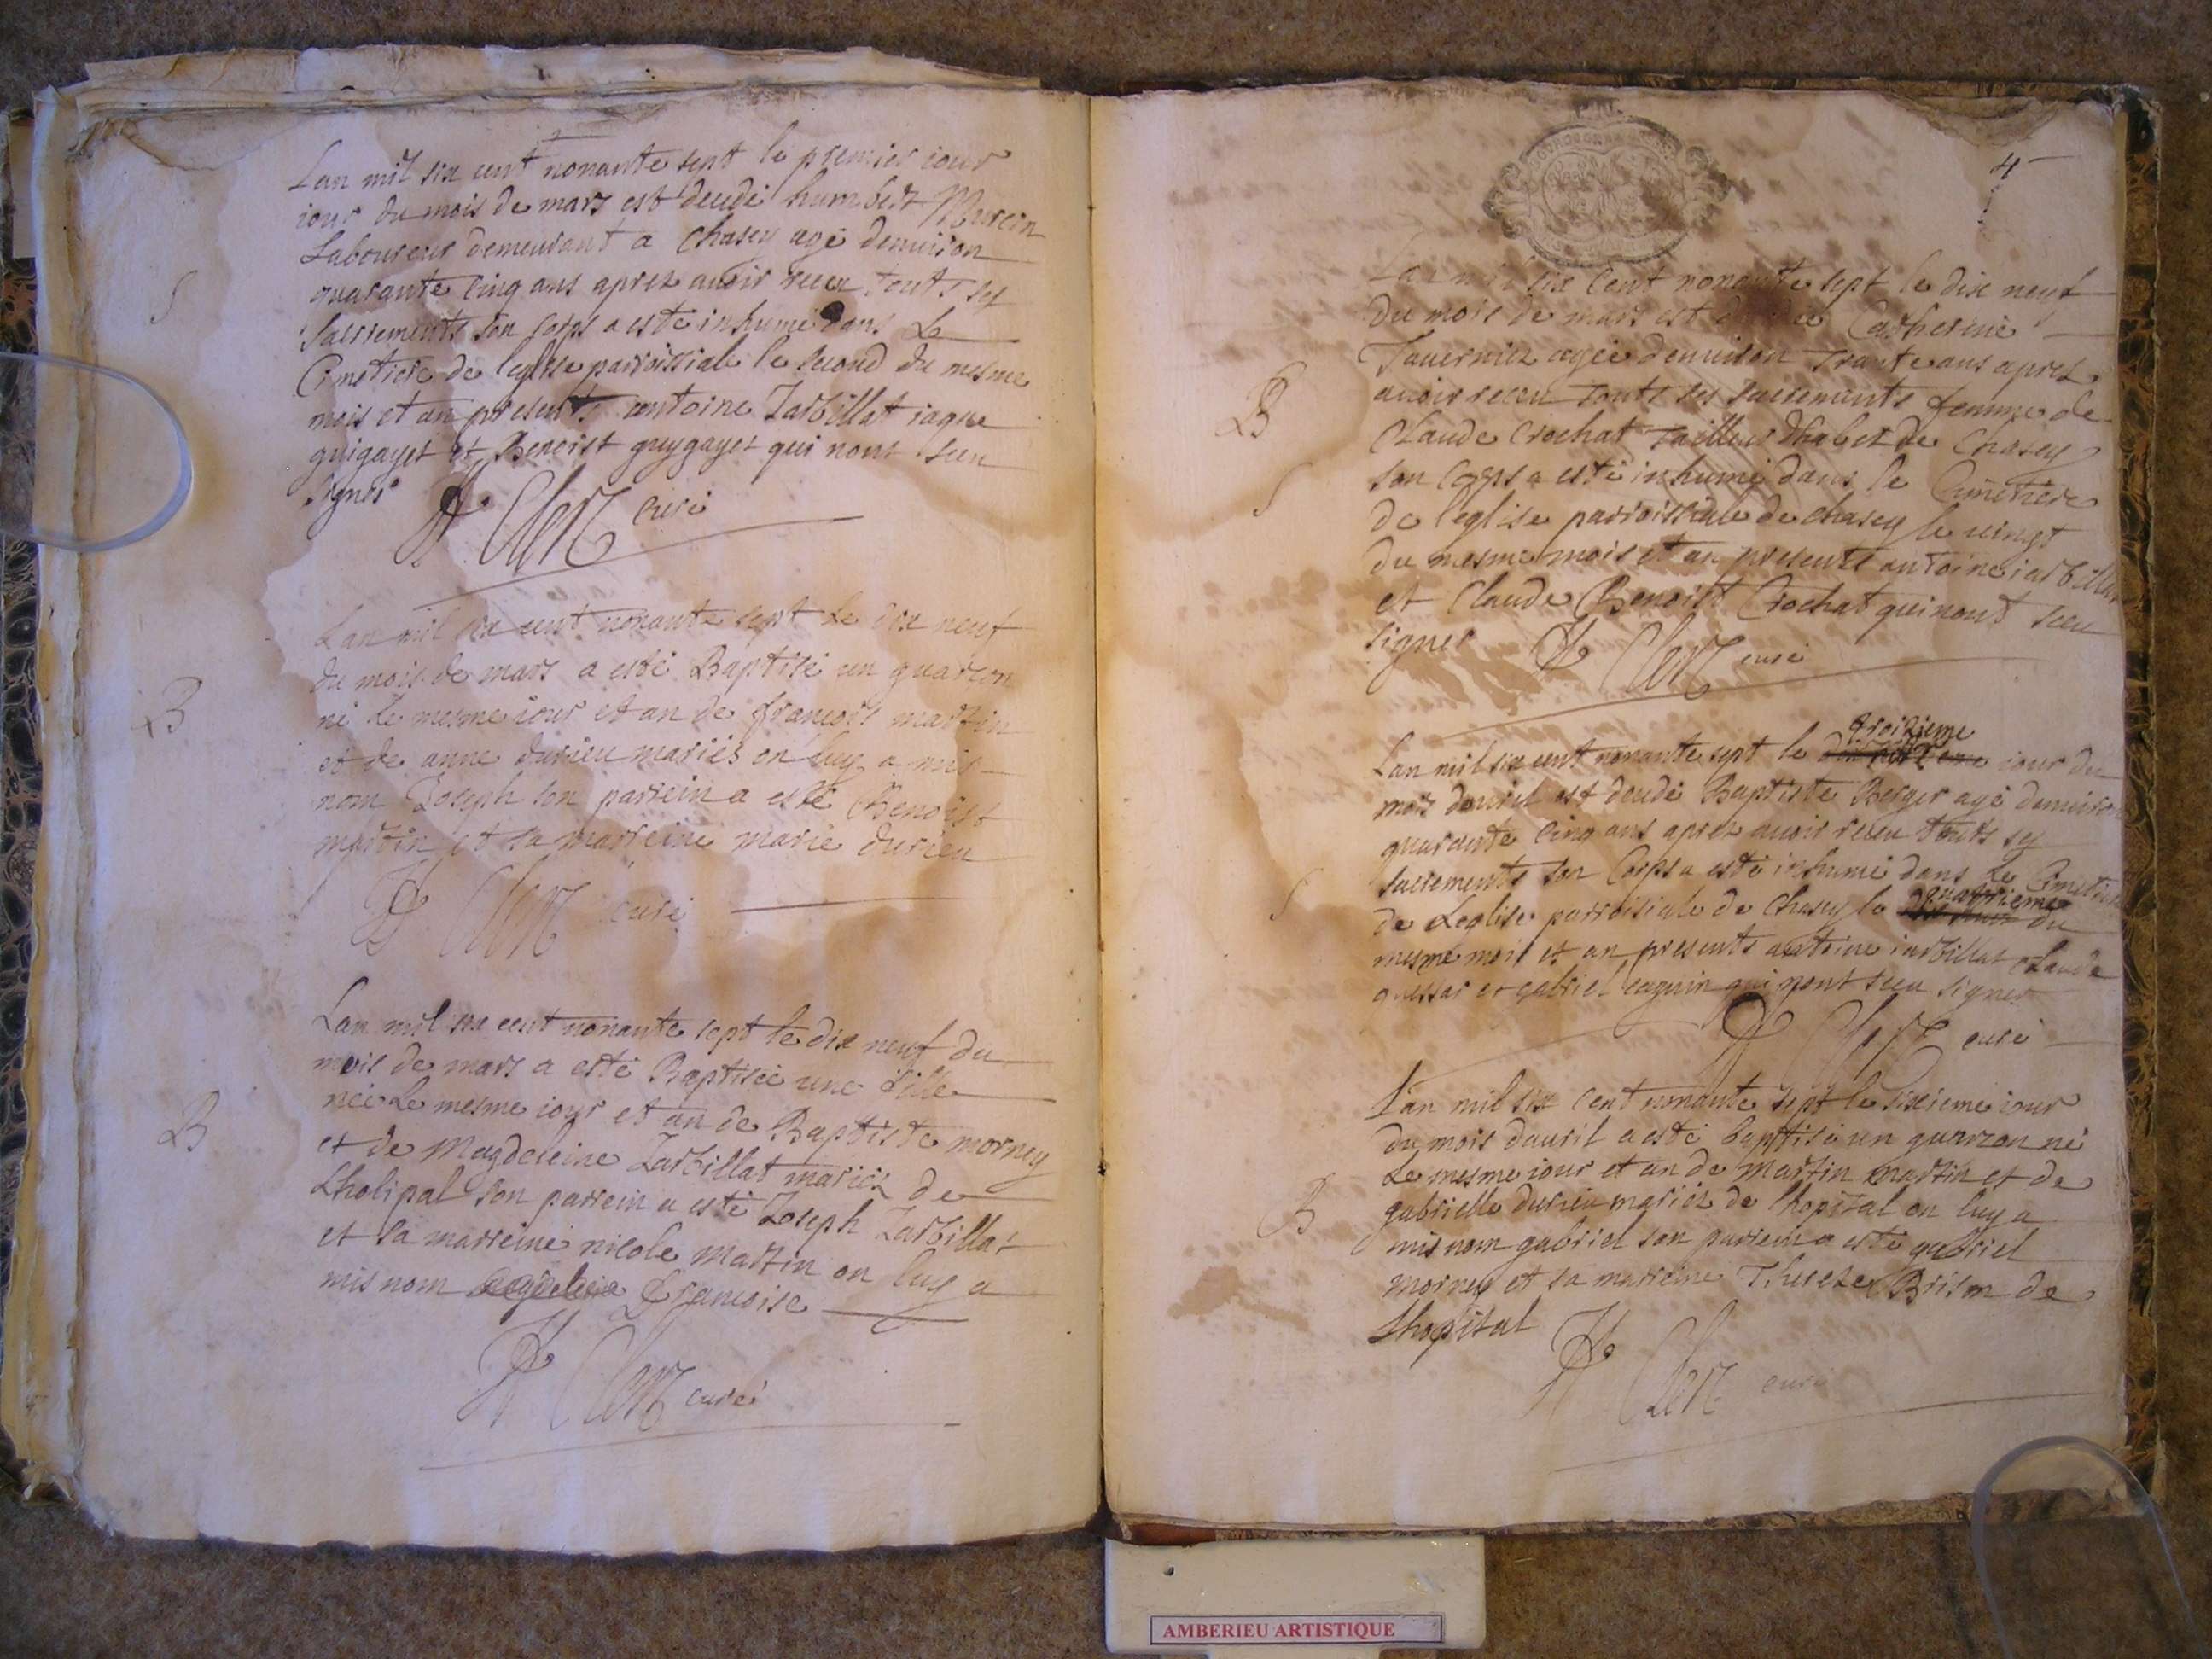 Lan mil six cent nonante sept le premier iour
iour du mois de mars est decedé humbert Murcin
Laboureur demeurant a Chasey agé denuiron
quarante cinq ans aprez auoir receu touts ses
sacrements son corps a esté inhumé dans Le
Cimetiere de leglise parroissiale le second du mesme
mois et an presents antoine Jarbillat iaque
guigayet et Benoist guygayet qui nont sceu
signer
Clerc curé
S
Lan mil six cent nonante sept Le dix neuf
du mois de mars a esté Baptisé un guarcon
né Le mesme iour et an de francois martin
et de anne durieu mariés on luy a mis
nom Joseph son parrein a esté Benoist
martin et sa marreine marie durieu
Clerc curé
B
Lan mil six cent nonante sept le dix neuf du
mois de mars a esté Baptisée une fille
née Le mesme iour et an de Baptiste morney
et de Magdeleine Jarbillat mariez de
Lholipal son parrein a esté Joseph Jarbillat
et sa marreine nicole martin on luy a
mis nom francoise
Clerc curé
B
4
Lan mil six Cent nonante sept le dix neuf
du mois de mars est Catherine
Tauernier agée denuiron trante ans aprez
auoir receu touts ses sacrements femme de
Claude Crochat Tailleur dhabet de Chasey
son Corps a esté inhumé dans le Cimetiere
de leglise parroissiale de chasey le uingt
du mesme mois et an presents antoine iarbillat
et Claude Benoist Crochat qui nont sceu
signer Clerc curé
B
S
troizieme
Lan mil six cent nonante sept le iour du
mois dauril est decedé Baptiste Berger agé denuiron
quarante cinq ans aprez auoir receu touts ses
sacrements son Corps a esté inhumé dans Le Cimetiere
quatrieme
de Leglise parroisiale de Chasey le du
mesme mois et an presents antoine iarbillat Claude
et gabriel qui nont sceu signer
Clerc curé
S
Lan mil six Cent nonante sept le sixieme iour
du mois dauril a esté baptisé un guarzon né
Le mesme iour et an de martin martin et de
gabrielle durieu mariez de lhopital on luy a
mis nom gabriel son parrein a esté gabriel
morney et sa marreine Therese Brison de
Lhopital
Clerc curé
B
AMBERIEU ARTISTIQUE